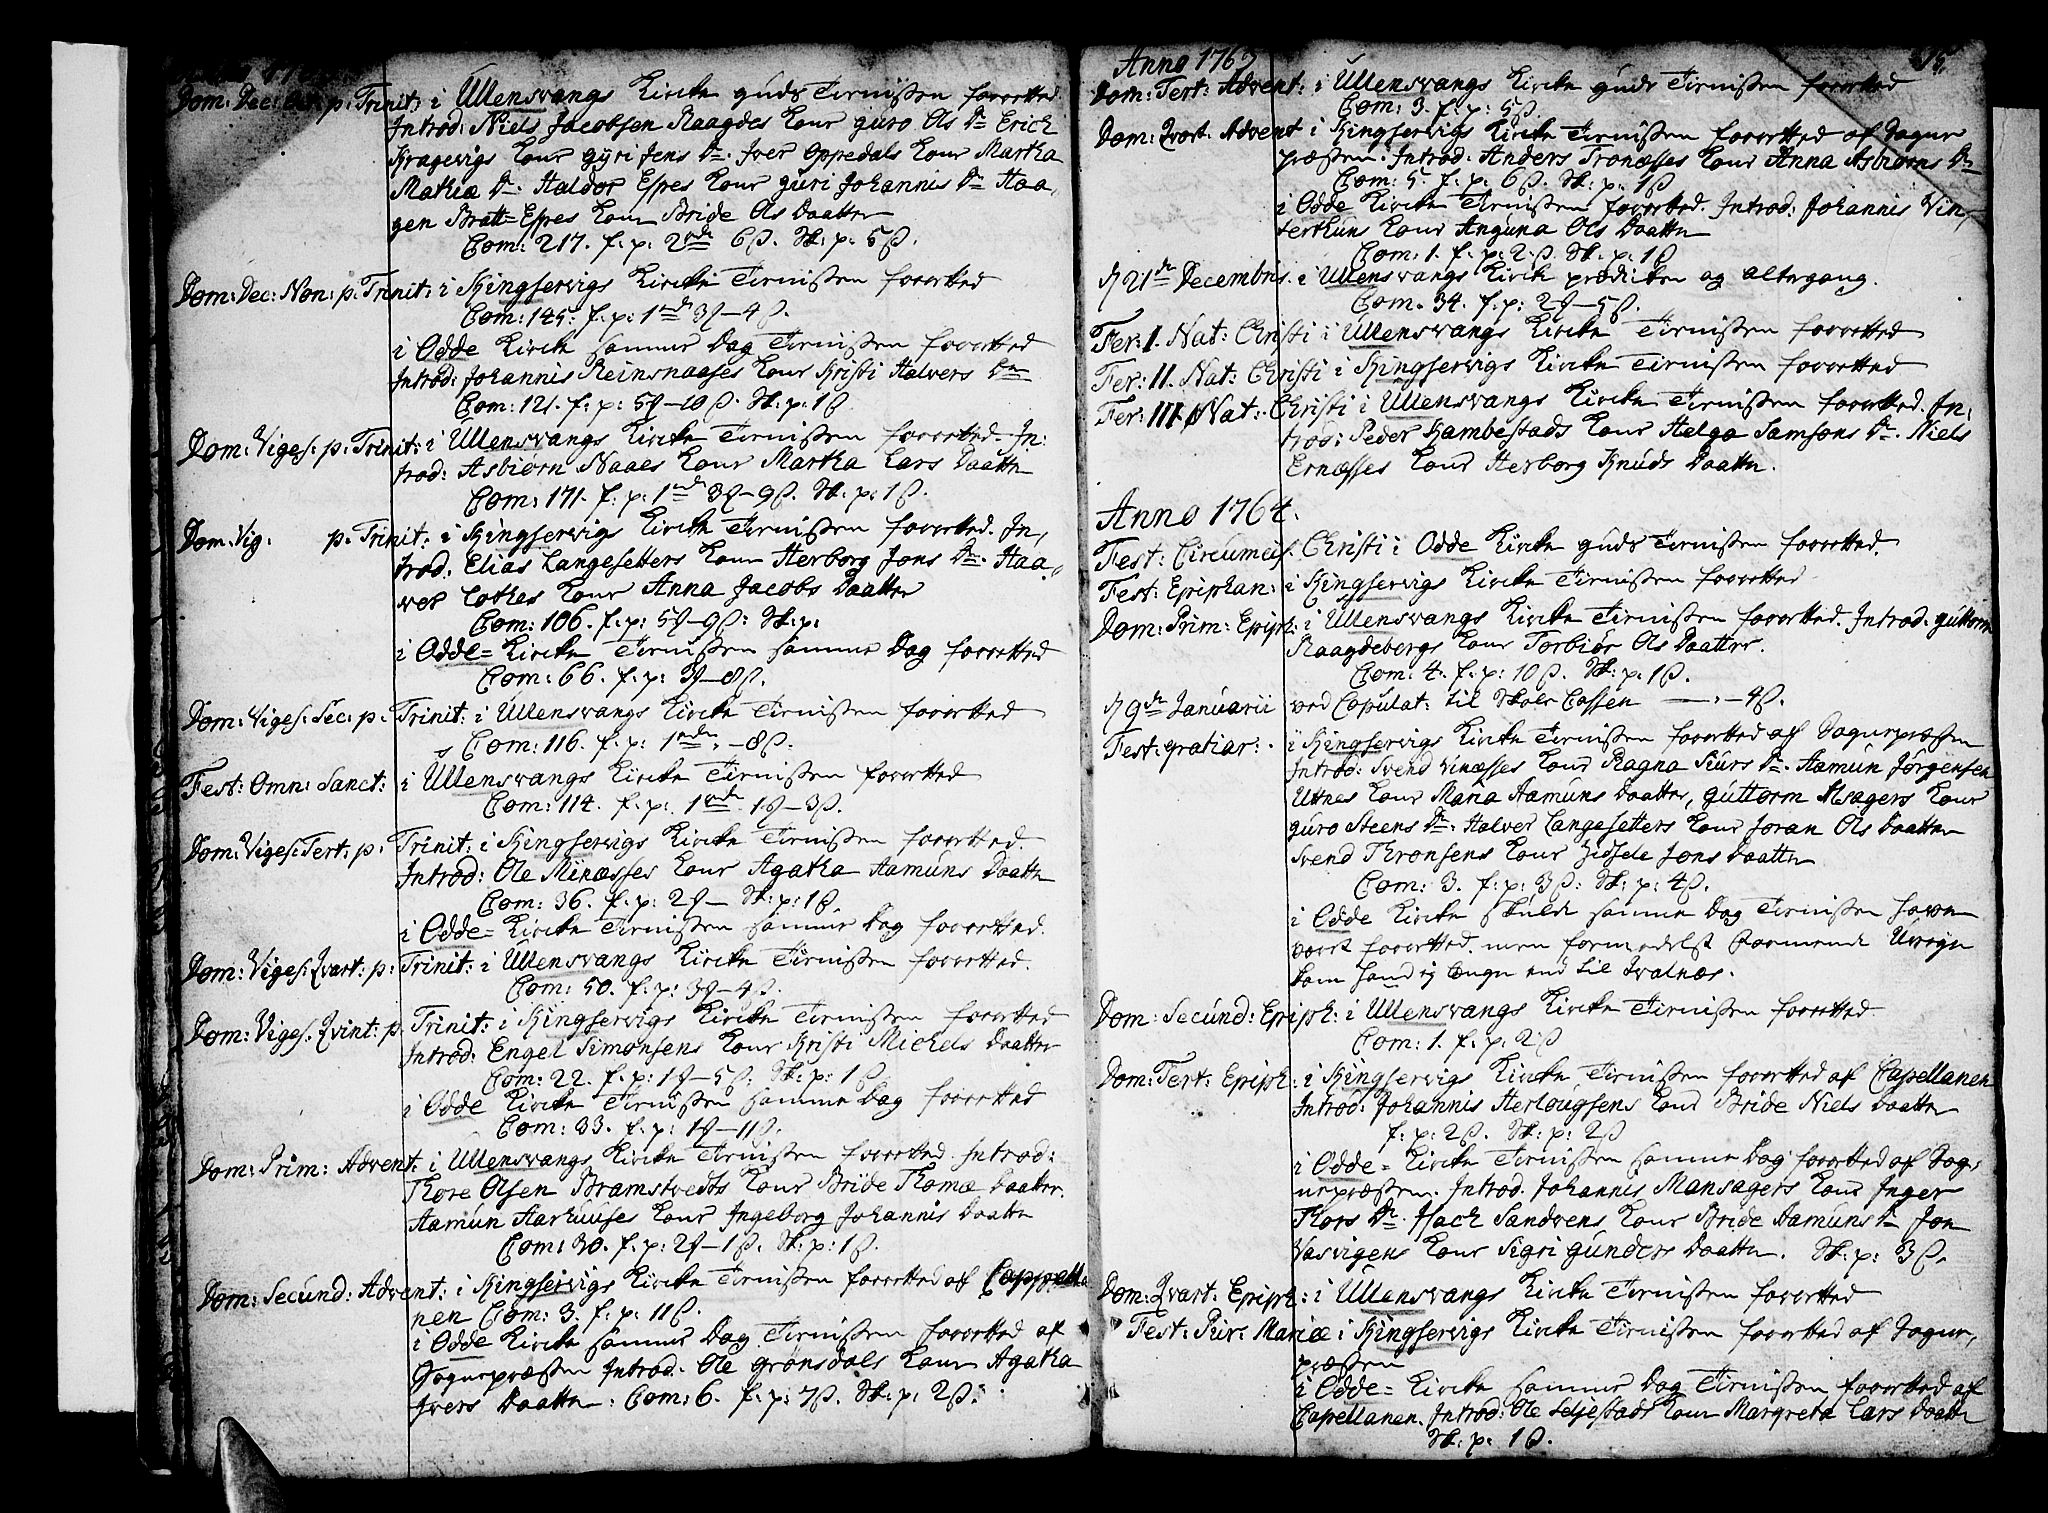 Dom: Dec: Oct: p: Trinit: i Ullensvangs Kircke guds Tieniſten forretted
Introd: Niels Jacobsen Raagdes Konr guro Ols Dr Erich
Kragevigs Konr gÿri Jens Dr. Iver Oppedals Konr Martha
Mathiæ Dr. Haldor Espes Konr gúri Johannis Dr Haa,
gen Bratt=Espes Konr Bride Ols Daatter
Com: 217. f: p: 2rdr 6ß. Sk: p: 5ß.
Dom: Dec: Non: p: Trinit: i Kingservigs Kircke Tieniſten forretted
Com: 145: f: p: 1rdr 3ꝭ-4ß.
i Odde Kircke samme Dag Tieniſten forretted
Introd: Johannis Reinsnaaſes Konr Kristi Halvers Dr
Com: 121. f: p: 5ꝭ-10ß. Sk: p: 1ß.
Dom: Viges: p: Trinit: i Ullensvangs Kircke Tieniſten forretted. In:
trod: Asbiørn Naaes Konr Martha Lars Daatter
Com: 171. f: p: 1rdr 3ꝭ-9ß. Sk: p: 1ß.
Dom: Vig: p: Trinit: i Kingservigs Kircke Tieniſten forretted. In,
trod: Elias Langesetters Konr Herborg Jons Dr. Haa,
ver Lothes Konr Anna Jacobs Daatter
Com: 106. f: p: 5ꝭ-9ß: Sk: p:
i Odde= Kircke Tieniſten samme Dag forretted
Com: 66. f: p: 3ꝭ-8ß.
Dom: Viges: Sec: p: Trinit: i Ullensvangs Kircke Tieniſten forretted
Com: 116. f: p: 1rdr, -8ß.
Fest: Omn: Sanct: i Ullensvangs Kircke Tieniſten forretted
Com: 114. f: p: 1rdr 1ꝭ-3ß.
Dom: Viges: Tert: p: Trinit: i Kingservigs Kircke Tieniſten forretted.
Introd: Ole Minæsses Konr Agatha Aamúns Daatter
Com: 36. f: p: 2ꝭ- Sk: p: 1ß.
i Odde= Kircke Tieniſten samme Dag forretted.
Dom: Viges: Qvart: p: Trinit: i Ullensvangs Kircke Tieniſten forretted.
Com: 50. f: p: 3ꝭ-4ß.
Dom: Viges: Qvint: p. Trinit: i Kingservigs Kircke Tieniſten forretted
Introd: Engel Simonsens Konr Kristi Michels Daatter
Com: 22. f: p: 1ꝭ-5ß: Sk: p: 1ß
i Odde Kircke Tieniſten samme Dag forretted
Com: 33. f: p: 1ꝭ-11ß.
Dom: Prim: Advent: i Ullensvangs Kircke Tieniſten forretted. Introd:
Thore Olsen Bramstvedts Konr Bride Thomæ Daatter.
Aamún Aarhuuses Konr Ingeborg Johannis Daatter
Com: 30. f: p: 2ꝭ-1ß. Sk: p: 1ß.
Dom: Secund: Advent: i Kingservigs Kircke Tieniſten forretted aff Cappella
nen Com: 3. f: p: 11ß.
i Odde Kircke samme Dag Tieniſten forretted af
Sognepræſten Introd: Ole Grønsdals Konr Agatha
Ivers Daatter. Com: 6. f: p: 7ß. Sk: p: 2ß.
Anno 1763
Dom: Tert: Advent: i Ullensvangs Kircke guds Tieniſten forretted
Com: 3. f: p: 5ß.
Dom: Qvart: Advent i Kingservigs Kircke Tieniſten forretted af Sogne
præſten. Introd: Anders Tronæsses Konr Anna Asbiørns Dr
Com: 5. f: p: 6ß. Sk: p: 1ß
i Odde Kircke Tieniſten forretted. Introd: Johannis Vin,
terthuns Konr Angúna Ols Daatter
Com: 1. f: p: 2ß. Sk: p: 1ß
D 21de Decembris. i Ullensvangs Kircke prædicken og altergang.
Com. 34. f: p: 2ꝭ-5ß.
Fer: I. Nat: Christi i Ullensvangs Kircke Tieniſten forretted
Fer: II. Nat: Christi i Kingservigs Kircke Tieniſten forretted
Fer: III. Nat: Christi i Ullensvangs Kircke Tieniſten forretted. In:
trod: Peder Hambestads Konr Helga Samsons Dr. Niels
Ernæsses Konr Herborg Knúds Daatter.
Anno 1764.
Fest: Circumcis: Christi i Odde Kircke guds Tieniſten forretted.
Fest: Epiphan: i Kingservigs Kircke Tieniſten forretted
Dom: Prim: Epiph: i Ullensvangs Kircke Tieniſten forretted. Introd: gúttorm
Raagdebergs Konr Torbiør Ols Daatter.
Com: 4. f: p: 10ß. Sk: p: 1ß.
D 9de Januarii ved Copulat: til Skole Cassen —,-4ß.
Fest: gratiar: i Kingservigs Kircke Tieniſten forretted af Sognepræſten
Introd: Svend Vinæsses Konr Ragna Siurs Dr. Aamún Jørgensen
Uttnes Konr Maria Aamúns Daatter, gúttorm Alsagers Konr
gúro Steens Dr. Halver Langesetters Konr Joran Ols Daatter
Svend Thronsens Konr Zidsele Jons Daatter
Com: 3. f: p: 3ß: Sk: p: 4ß.
i Odde Kircke skulde samme Dag Tieniſten have
veret forretted, men formedelst Uveyr
kom hand ej længer end til
Dom: Secúnd: Epiph: i Ullensvangs Kircke Tieniſten forretted
Com: 1. f: p: 2ß
Dom: Tert: Epiph: i Kingservigs Kircke Tieniſten forretted af Capellanen
Introd: Johannis Herlougsens Konr Bride Niels Daatter
f: p: 2ß. Sk: p: 2ß
i Odde= Kircke Tieniſten samme Dag forretted af Sog,
nepræſten. Introd. Johannis Mansagers Konr Inger
Thors Dr. Isach Sandvens Konr Bride Aamúns Dr Jon
Vasvigens Konr Sigri gúnders Daatter. Sk: p: 3ß.
Dom: Qvart. Epiph: i Ullensvangs Kircke Tieniſten forretted
Fest: Púr: Mariæ i Kingservigs Kircke Tieniſten forretted af Sogne,
præſten
i Odde= Kircke samme Dag Tieniſten forretted af
Capellanen. Introd: Ole Seljestads Konr Margreta Lars Daatter
Sk: p: 1ß.